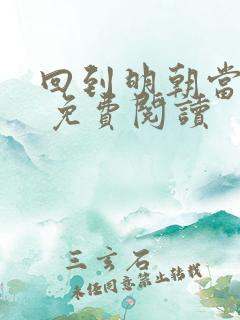 回到明朝當
免費閱讀
三言石
未经同意禁止转载